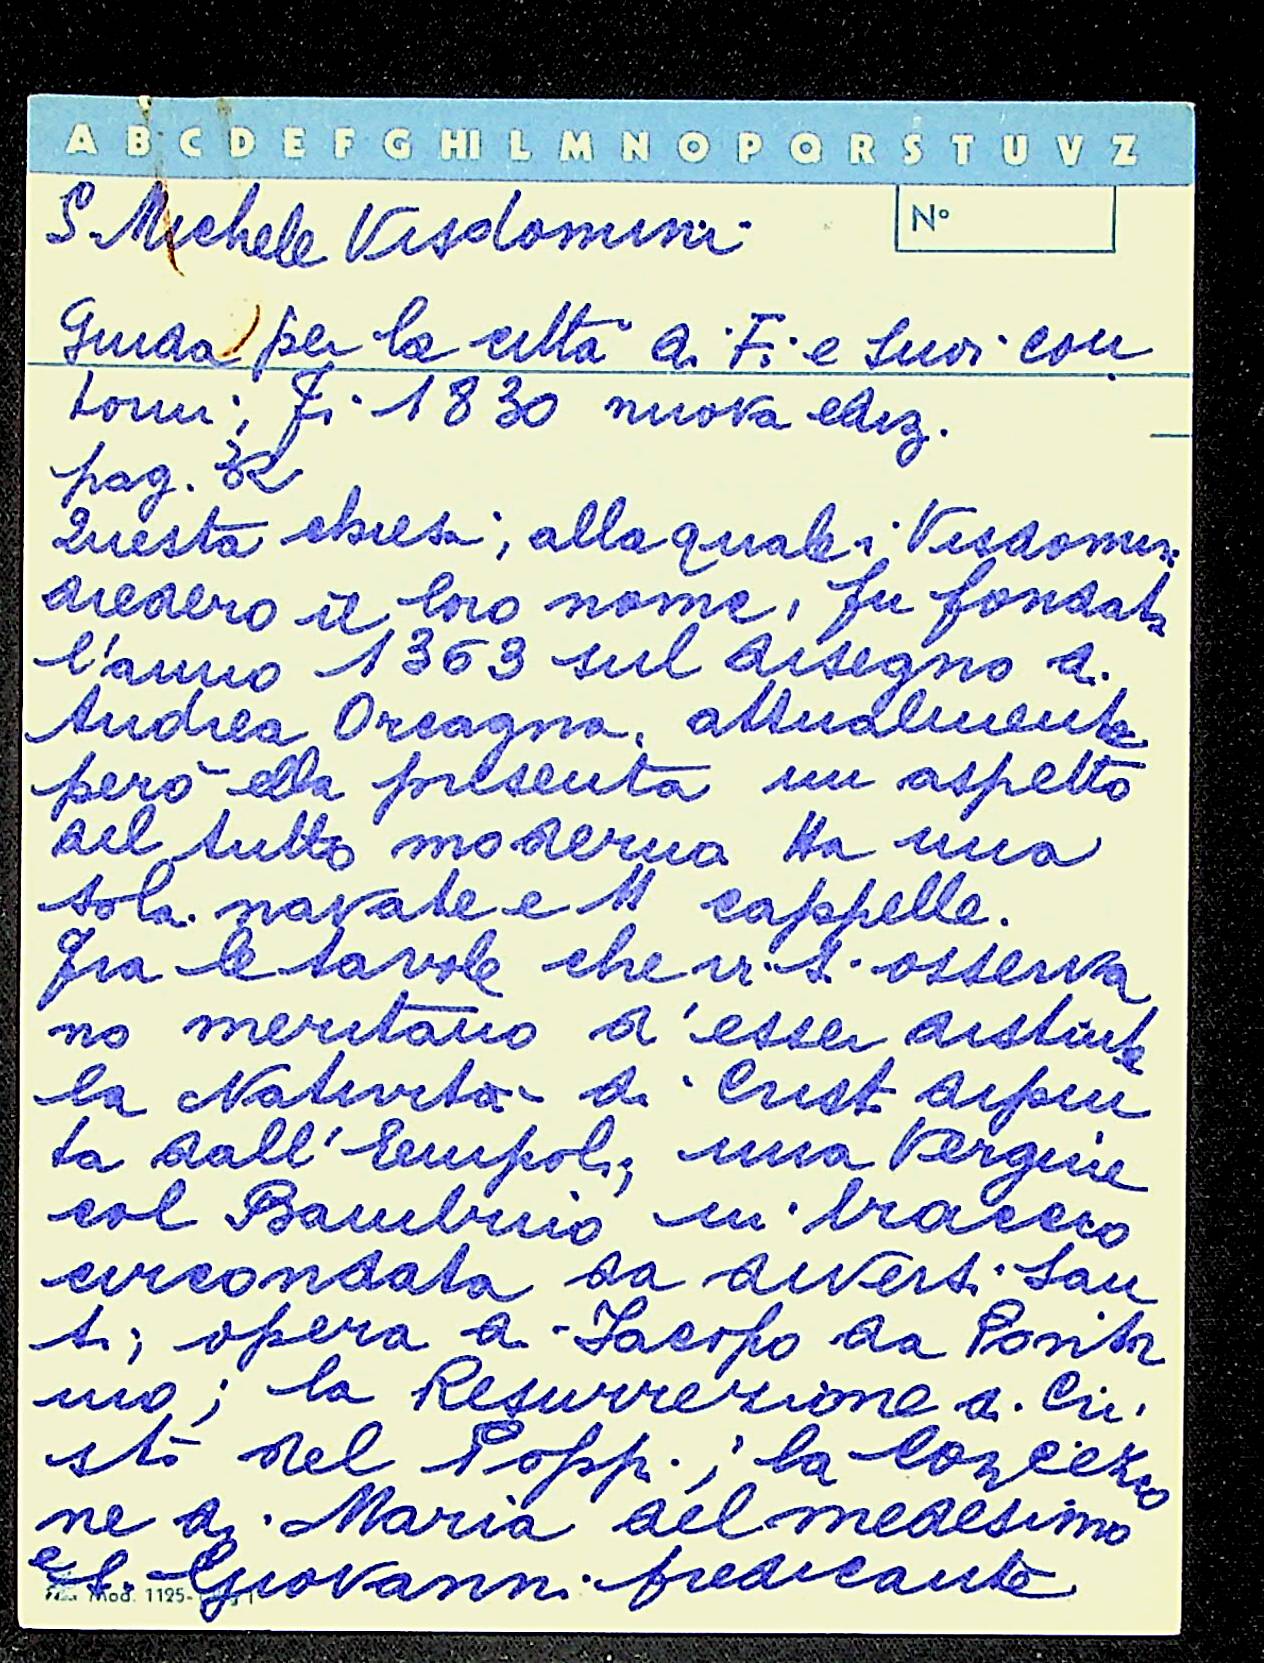 A B C D E F G HI L M N O P Q R S T U V Z
S. Michele Visdomini
N°
Guida per la città di F. e suoi con
torni; Fi. 1830 nuova ediz.
pag. 32
Questa chiesa, alla quale i Visdomini
diedero il loro nome, fu fondata
l'anno 1363 sul disegno di
Andrea Orcagna, attualmente
però ella presenta un aspetto
del tutto moderna Ha una
sola navate e 11 cappelle.
Fra le tavole che vi si osserva
no meritano d'esser distinte
la Natività di Crist. dipin
ta dall'Empoli; una Vergine
col Bambino in braccio
circondata da diversi San
ti; opera di Iacopo da Pontor
mo; la Resurrezione di Cri
sto del Poppi; la Concezio
ne di Maria del medesimo
e S. Giovanni predicante
Mod. 1125-